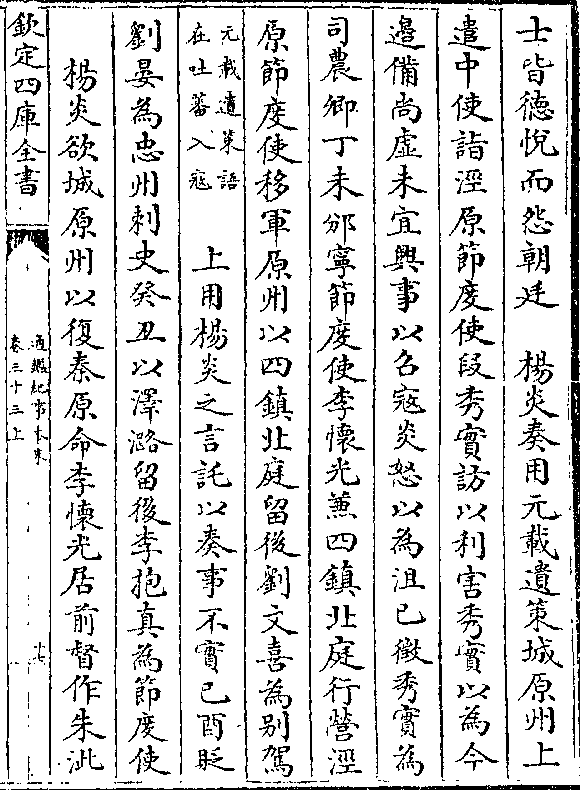 士皆德悅而怨朝廷　楊炎奏用元載遺策城原州上
遣中使詣涇原節度使段秀實訪以利害秀實以為今
邉備尚虚未宜興事以召寇炎怒以為沮已徵秀實為
司農卿丁未邠寧節度使李懷光兼四鎮北庭行營涇
原節度使移軍原州以四鎮北庭留後劉文喜為别駕
元載遺策語
在吐蕃入寇
上用楊炎之言託以奏事不實已酉貶
劉晏為忠州刺史癸丑以澤潞留後李抱真為節度使
楊炎欲城原州以復秦原命李懷光居前督作朱泚
欽定四庫全書
通鑑紀事本末
卷三十三上
十七